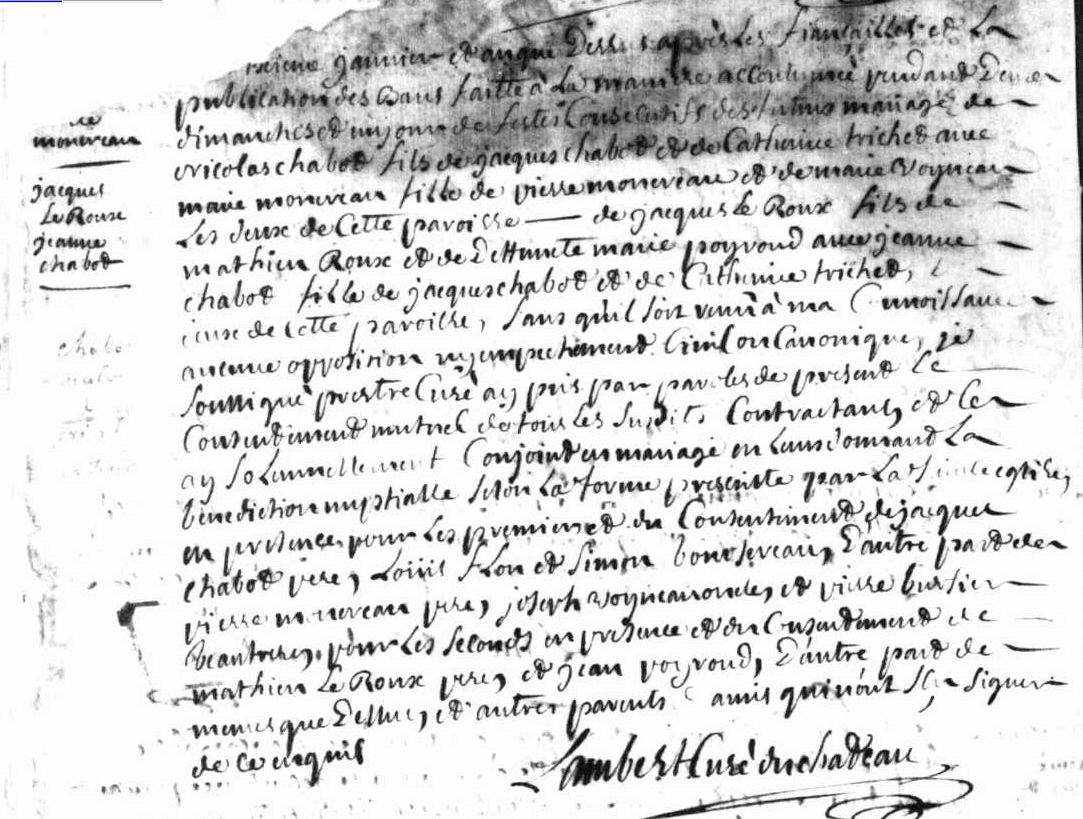 janvier et an que Dessus après Les fiançailles et La
publication des Bans faitte à La maniere accoutumée pendand Deux
dimanches et un jour de festes Consecutifs des futurs mariage de
nicolas chabod fils de jacques chabod et de Catherine trichet avec
marie monereau fille de pierre monereau et de marie Voyneau
Les deux de Cette paroisse — de jacques Le Roux fils de
mathieu Roux et de Deffuncte marie poyroud avec jeanne
chabod fille de jacques chabod et de Catherine trichet,
de Cette paroisse, sans qu'il soit venu à ma Connoissance
aucune opposition ny empechement Civil ou Canonique, je
soussigné prestre Curé ay pris par paroles de present Le
Consendement mutuel de tous Les susdits Contractans, et Les
ay solennellement Conjoint en mariage en Leurs donnand La
benediction nuptialle selon La forme prescritte par La s eglise,
en presence pour Les premiers et du Consentiment de jacques
chabod pere, Louis flon et simon boursereau, D'autre pard de
pierre monereau pere, joseph voyneau oncle, et pierre bursier
beaufrere, pour Les seconds en presence et du Consendement de
mathieu Le Roux pere, et jean poyroud, D'autre pard de
memes que Dessus, et autres parents amis qui n'ont sçu signer
de ce enquis
Lambert Curé du chadeau
monereau
jacques
Le Roux
jeanne
chabod